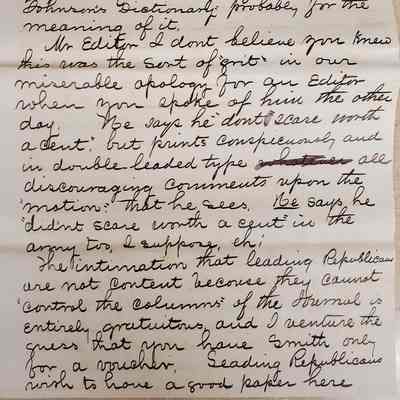 Johnson's Dictionary probably for the
meaning of it.
Mr Editor I dont believe you knew
this was the sort of "grit" in our
miserable apology for an Editor
when you spoke of him the other
day. He says he "dont scare worth
a cent", but prints conspicuously and
in double leaded type all
discouraging comments upon the
"motion" that he sees. He says, he
"didnt scare worth a cent" in the
army too, I suppose, eh!
The intimation that leading Republicans
are not content because they cannot
"control the columns" of the Journal is
entirely gratuitous, and I venture the
guess that you have Smith only
for a voucher. Leading Republicans
wish to have a good paper here